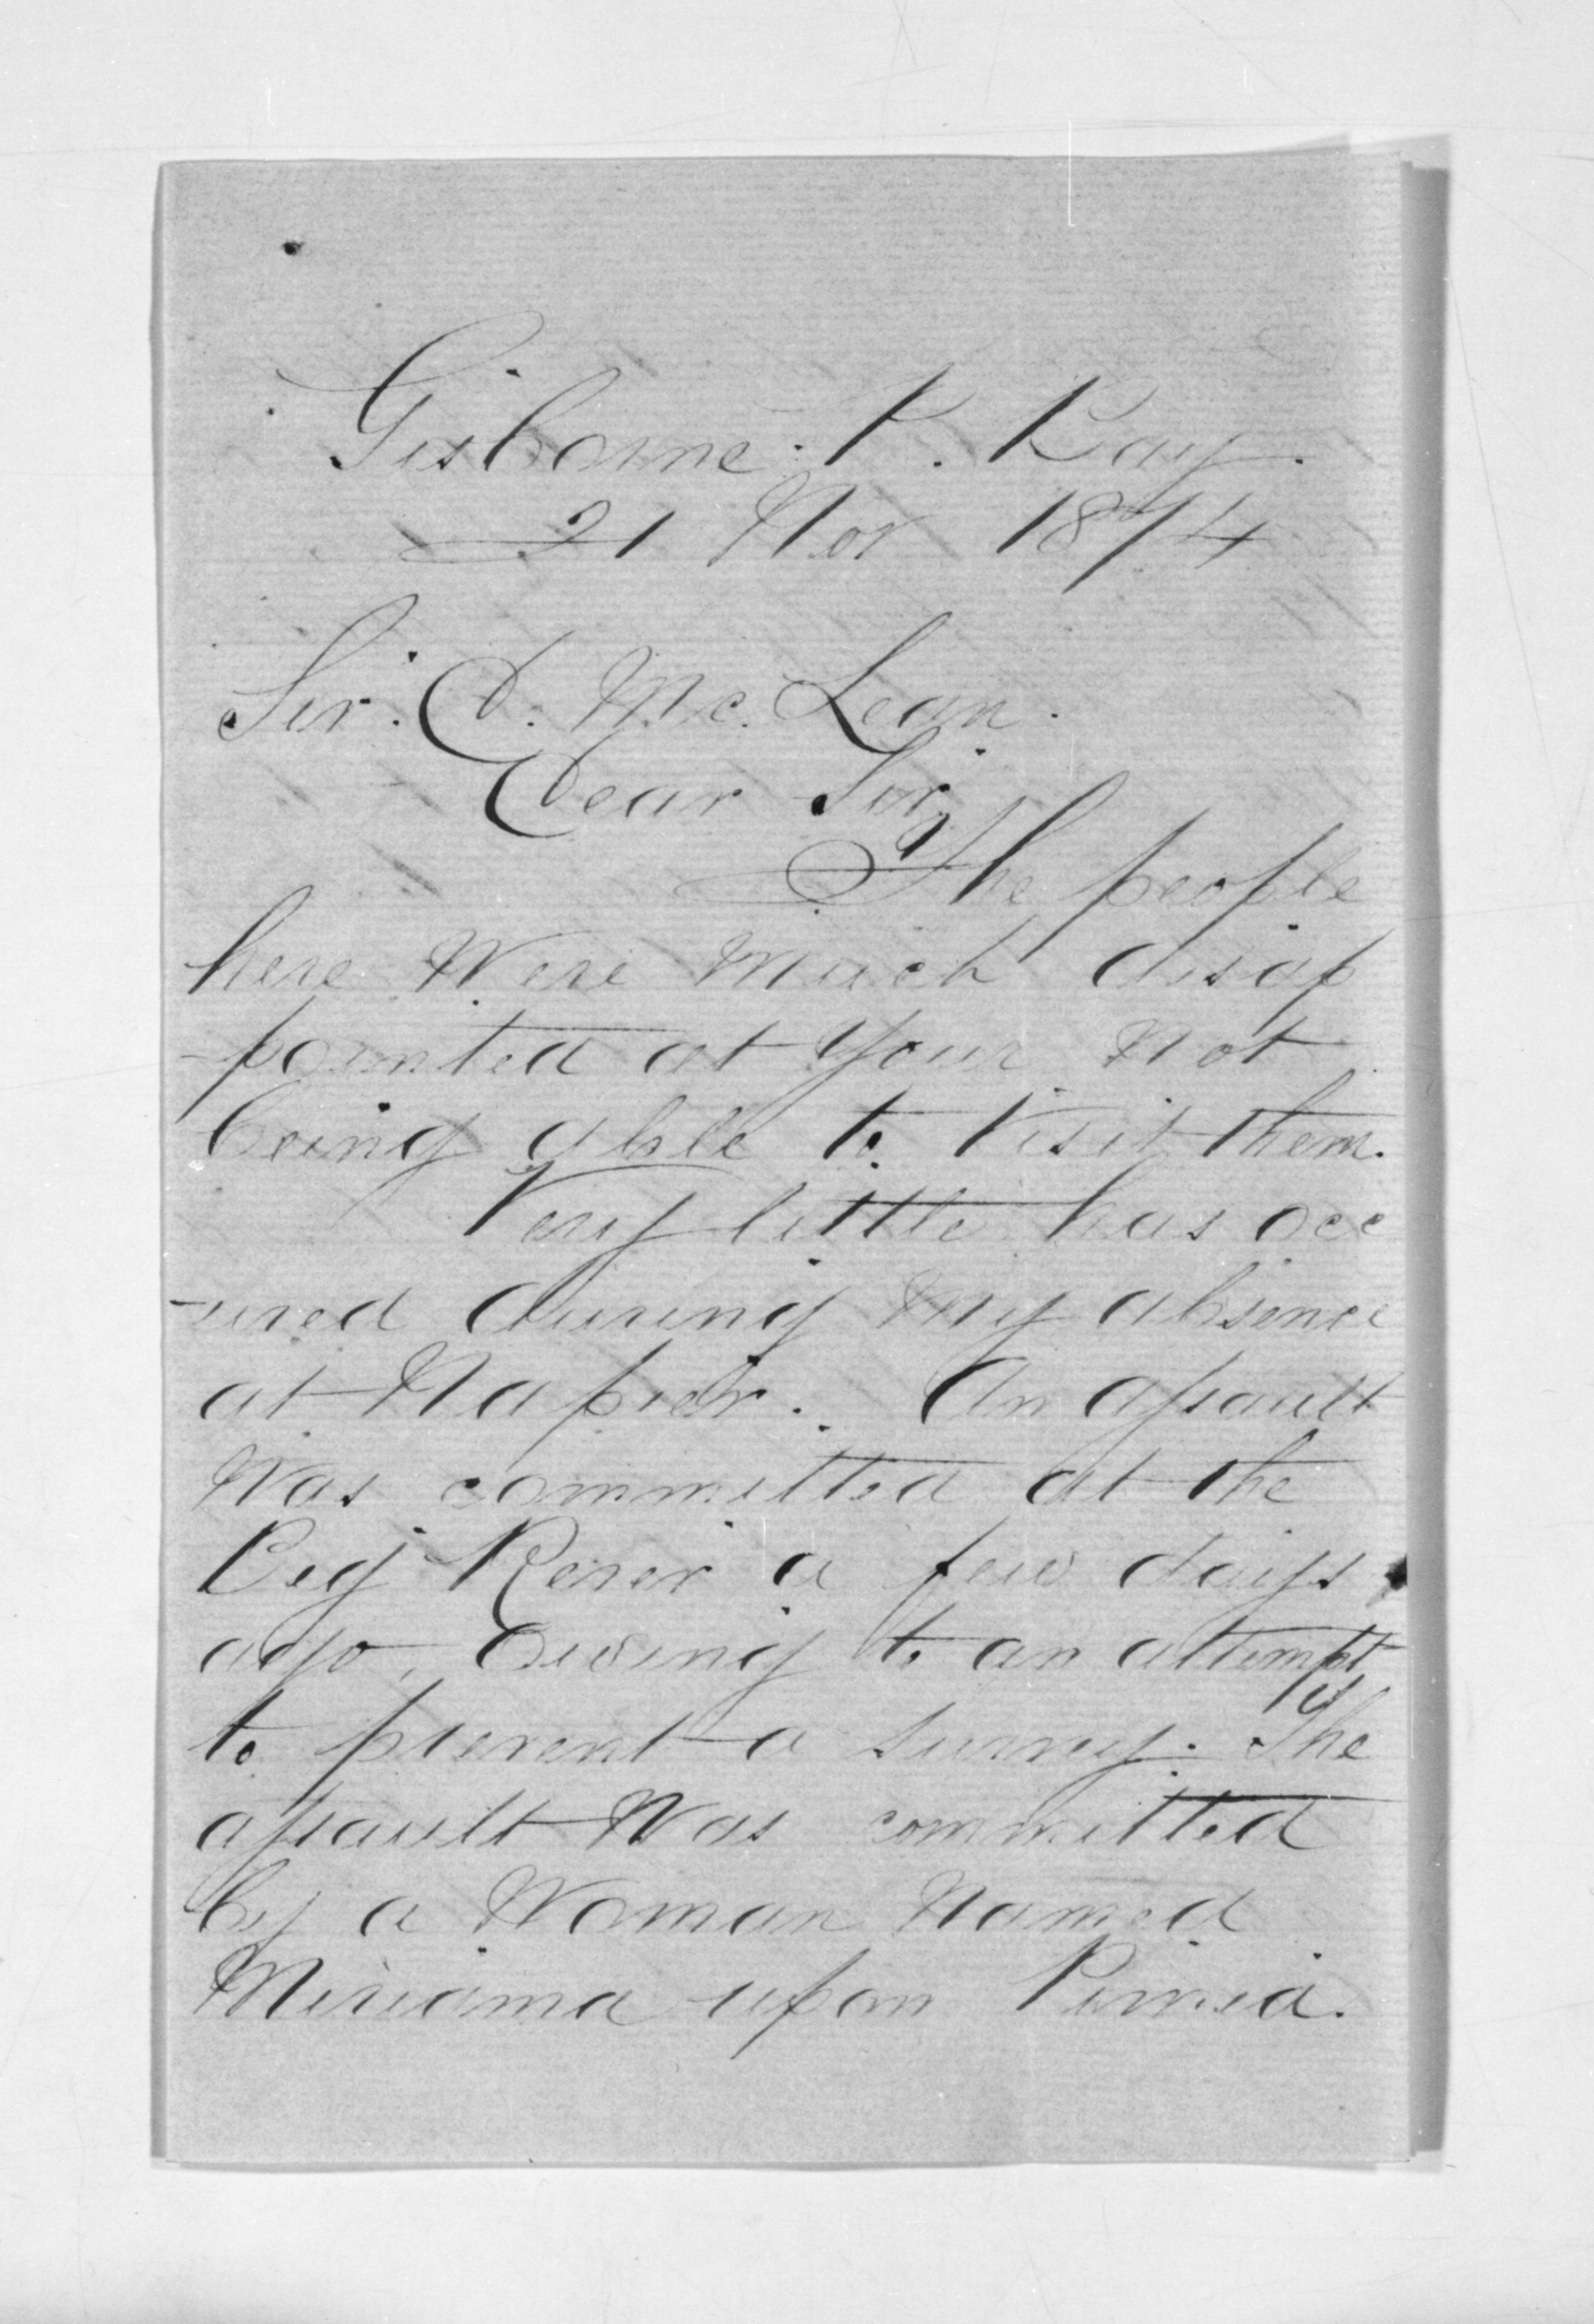 Gisborne. P. Bay.
21 Nov 1874
Sir. D. Mc. Lean.
Dear Sir,
The people
here Were much disap
-pointed at your not
being able to visit them.
Very little has occ
-ured during my absence
at Napier. An assault
Was committed at the
Big River a few days
ago, Owing to an attempt
to prevent a survey. The
assault Was committed
by a Woman Named
Miriama upon